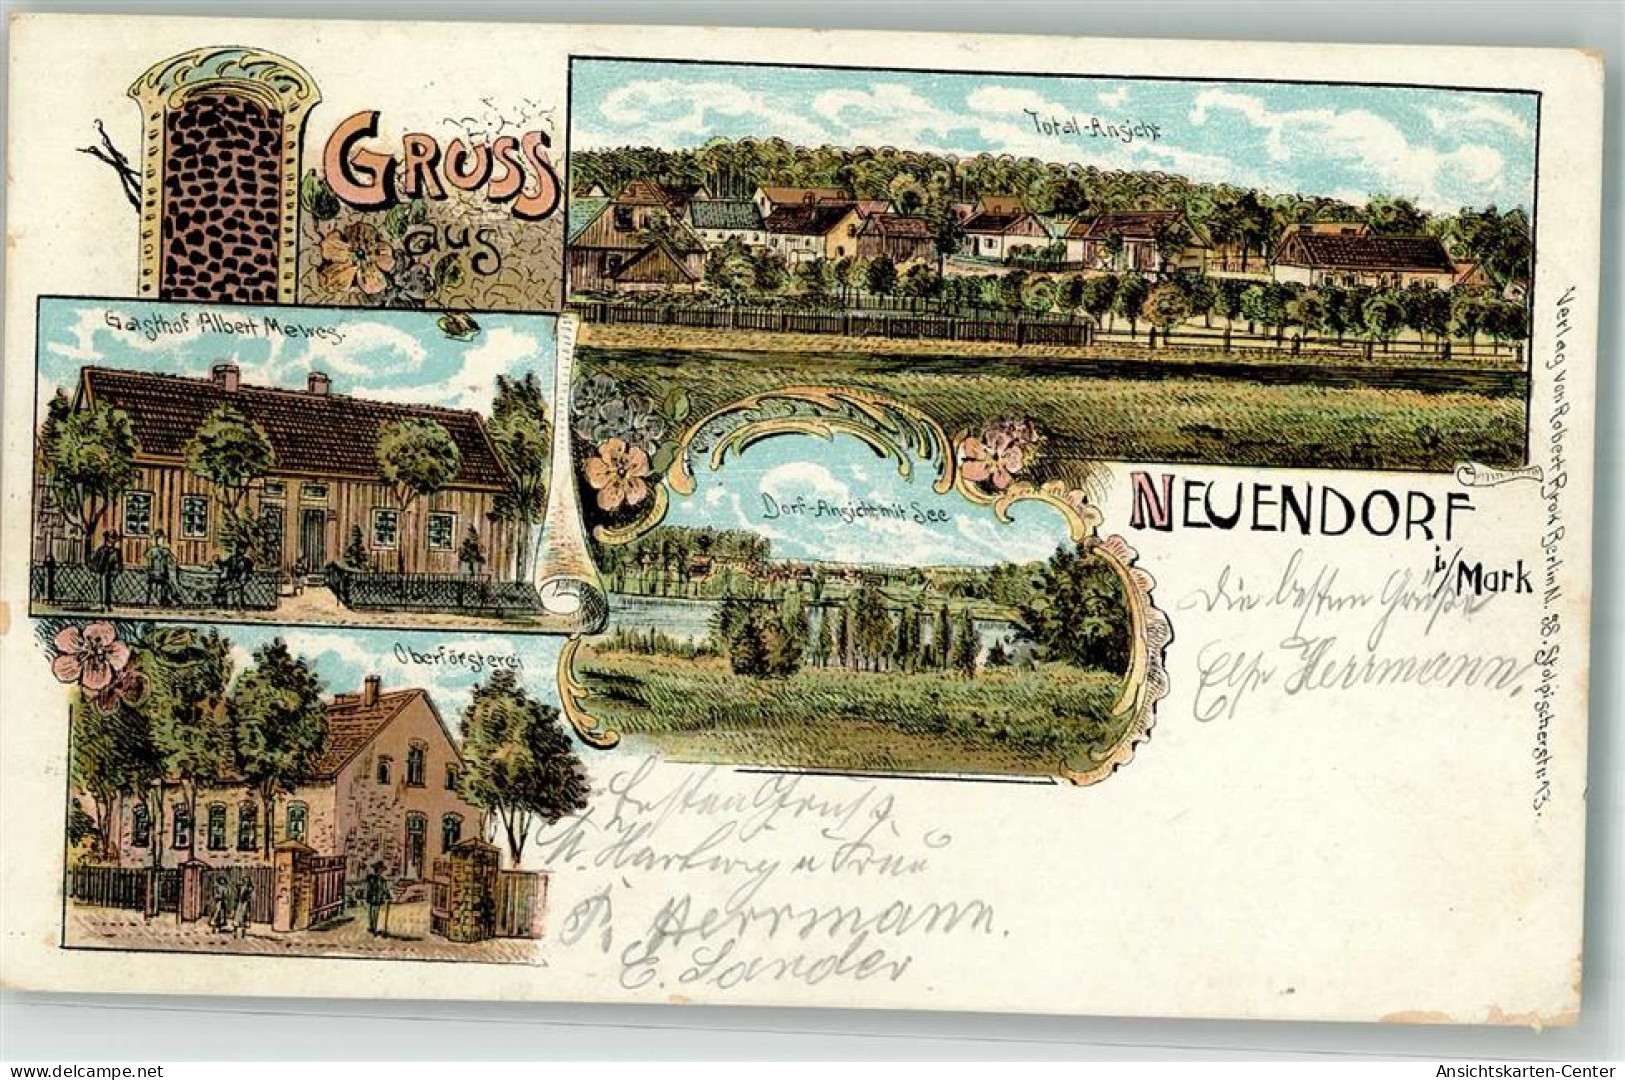 GRUSS
aus
Total-Ansicht
Gasthof Albert Mewes.
Dorf-Ansicht mit See
NEUENDORF
i/Mark
Oberförsterei
Verlag von Robert Pyrou Berlin N. 58. Stolpischerstr. 13.
Die besten Grüße
Else Herrmann.
Besten Gruß
Harburg u Frau
Herrmann.
E. Sander
www.ansichtskarten-center.de
Ansichtskarten-Center